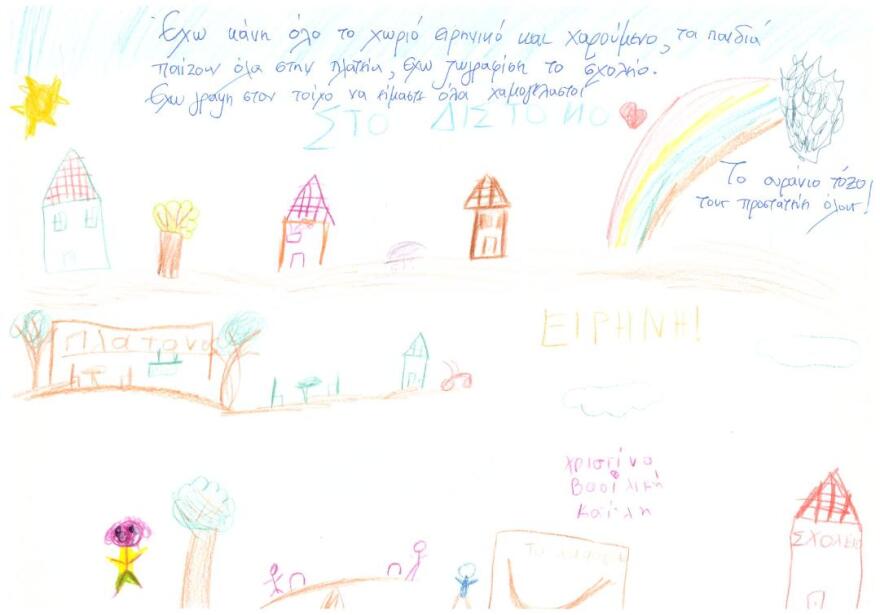 Έχω κάνη όλο το χωριό ειρηνικό και χαρούμενο, τα παιδιά
παίζουν όλα στην πλατεία, έχω ζωγραφίση το σχολείο.
Έχω γράψη στον τοίχο να είμαστε όλα χαμογελαστοί
ΣΤΟ ΔΙΣΤΟΜΟ
Το ουράνιο τόξο
τους προστατεύη όλους!
ΕΙΡΗΝΗ!
Πλάτανος
Χριστίνα
Βασιλική
Καίλη
ΣΧΟΛΕΙΟ